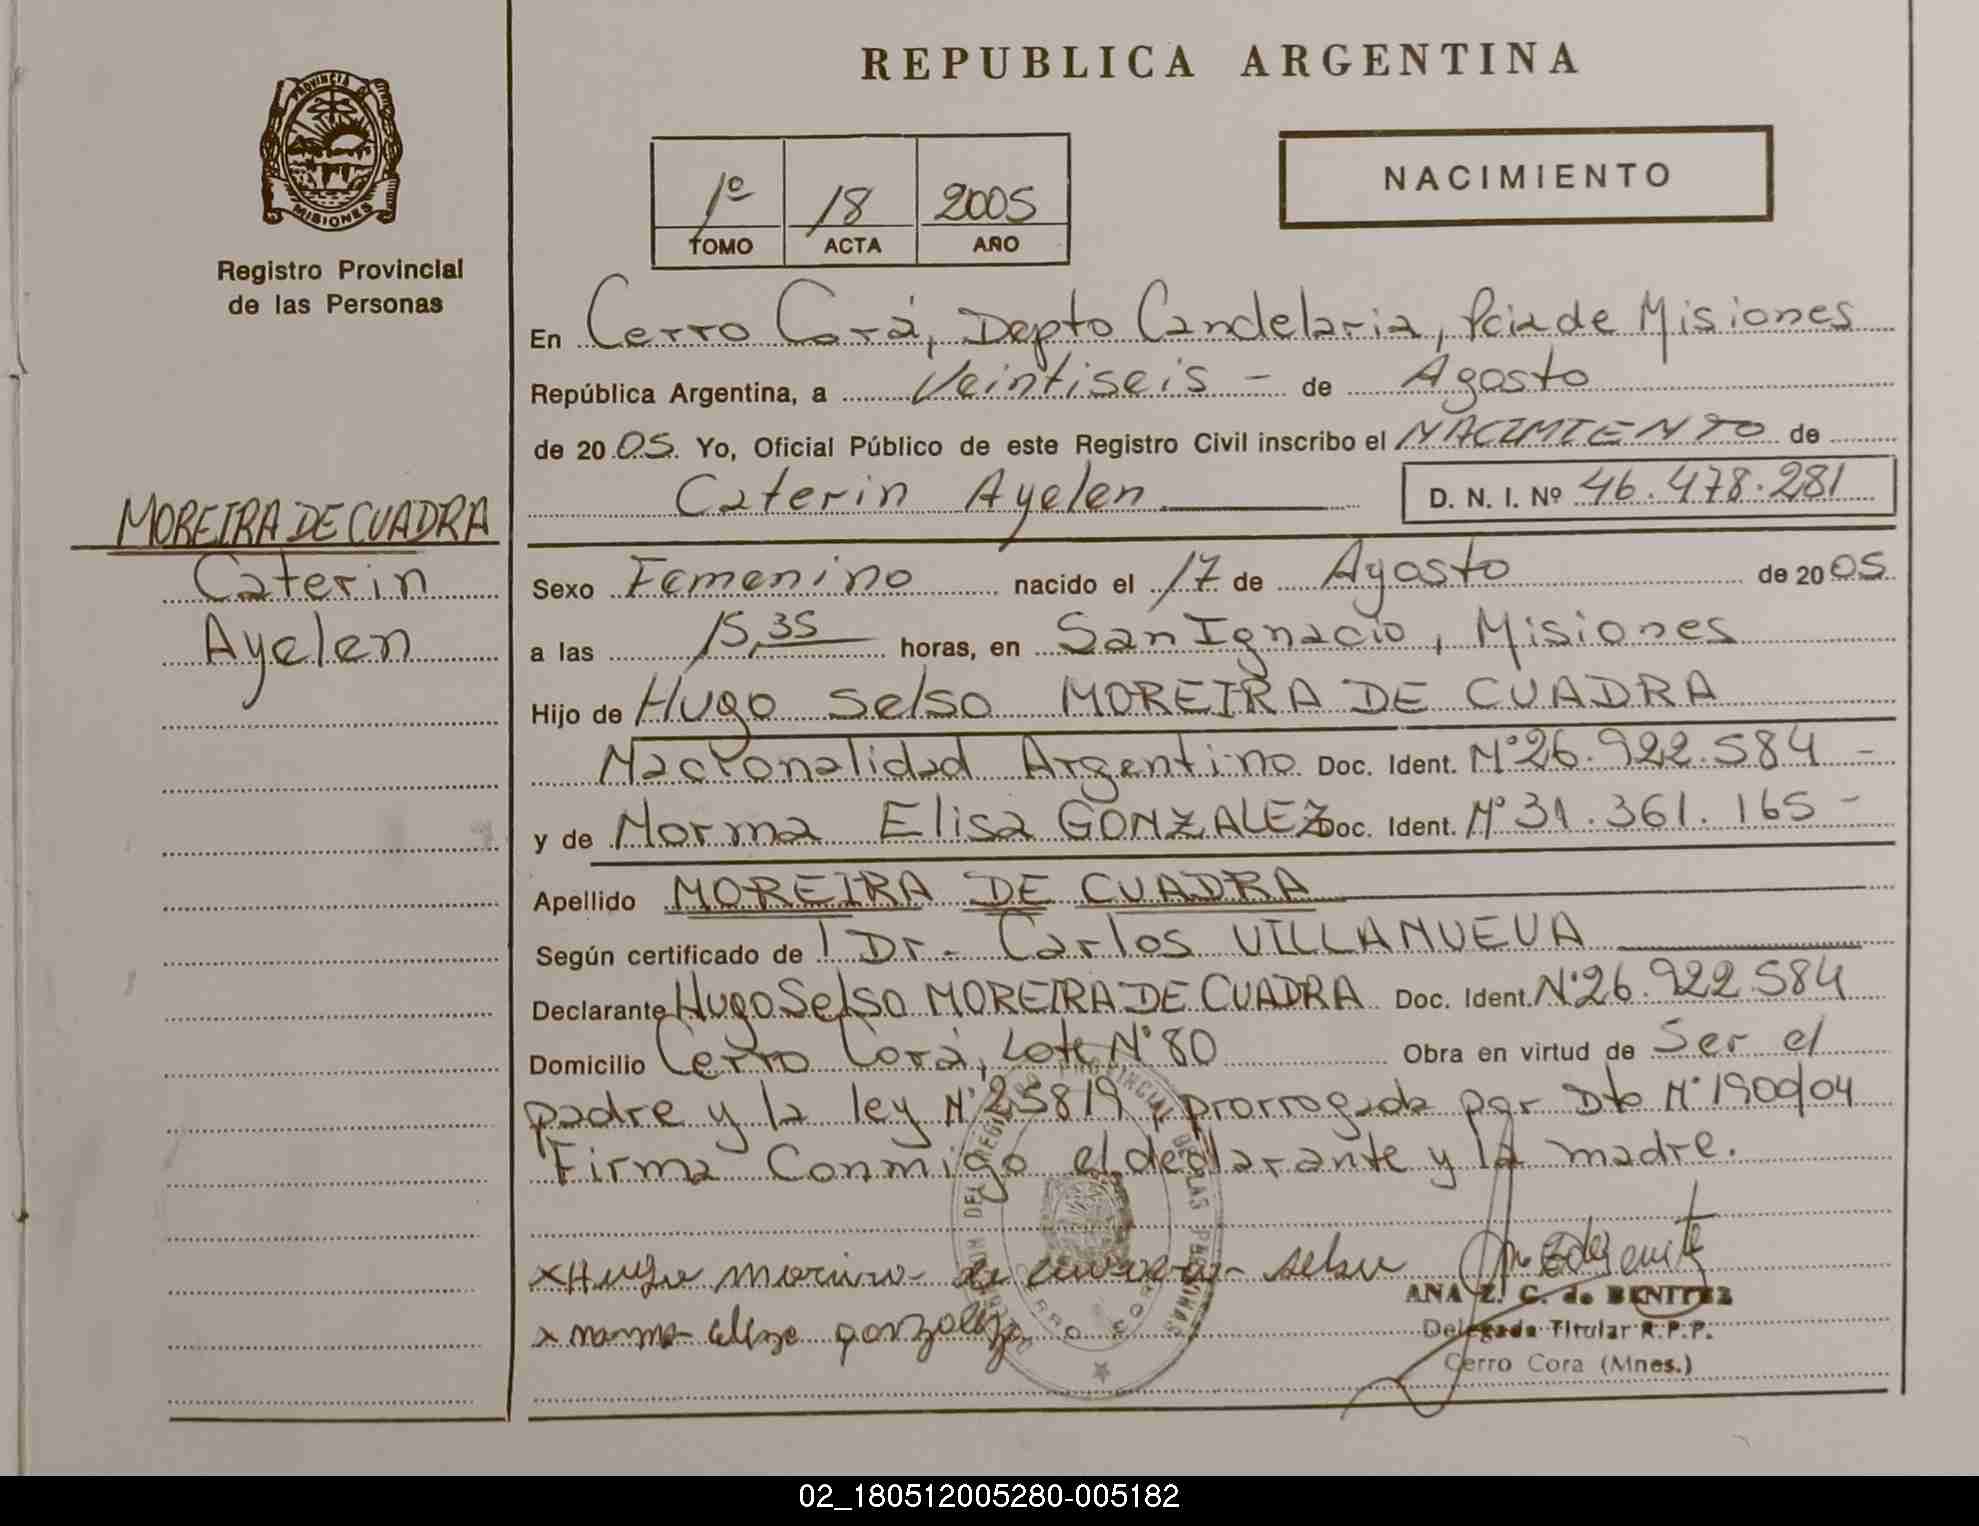 REPUBLICA ARGENTINA
PROVINCIA D MISIONES
Registro Provincial
de las Personas
MOREIRA DE CUADRA
Caterin
Ayelen
1º 18 2005
TOMO ACTA AÑO
NACIMIENTO
En Cerro Corá, Depto Candelaria, Pcia de Misiones
República Argentina, a Veintiseis - de Agosto
de 2005. Yo, Oficial Público de este Registro Civil inscribo el NACIMIENTO de
Caterin Ayelen D. N. I. Nº 46.478.281
Sexo Femenino nacido el 17 de Agosto de 2005
a las 15,35 horas, en San Ignacio, Misiones
Hijo de Hugo Selso MOREIRA DE CUADRA
Nacionalidad Argentino Doc. Ident. Nº 26.922.584 -
y de Norma Elisa GONZALEZ Doc. Ident. Nº 31.361.165 -
Apellido MOREIRA DE CUADRA
Según certificado de Dr. Carlos VILLANUEVA
Declarante Hugo Selso MOREIRA DE CUADRA Doc. Ident. Nº 26.922.584
Domicilio Cerro Corá, Lote Nº 80 Obra en virtud de Ser el
padre y la ley Nº 25819 prorrogada por Dto Nº 1900/04
Firma Conmigo el declarante y la madre.
x Hugo de selso
x norma elize gonzalez
ANA Z. C. de BENITEZ
Delegada Titular R.P.P.
Cerro Cora (Mnes.)
02_180512005280-005182